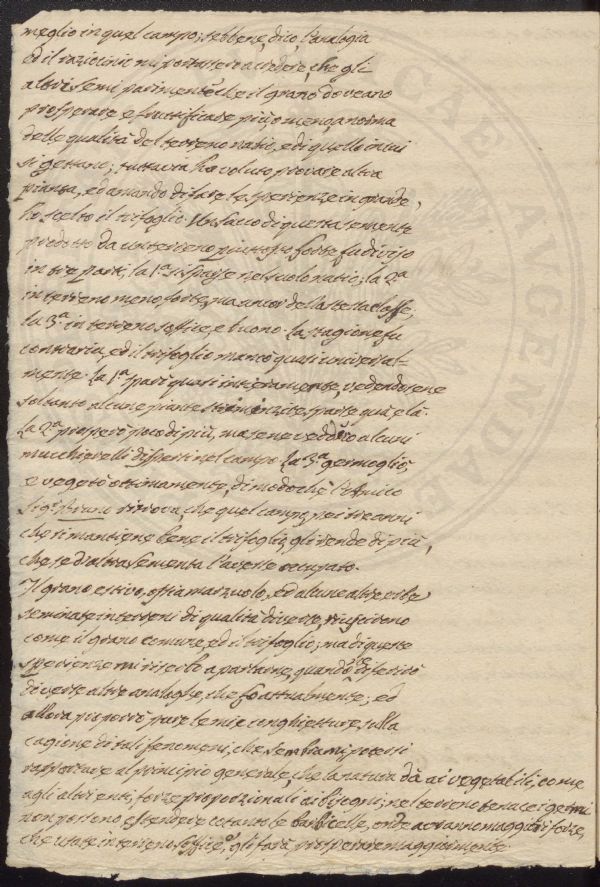 meglio in quel campo; sebbene, dico, l'analogia
ed il raziocinio mi portassero a credere, che gli
altri semi parimente che il grano doveano
prosperare e fruttificare più, o meno, a norma
delle qualità del terreno natio, e di quello in cui
si gettano; tuttavia ho voluto provare altra
pianta, ed amando di fare le sperienze in grande,
ho scelto il trifoglio. Un sacco di questa semente
prodotto da un terreno piuttosto forte fu diviso
in tre parti, la 1.a si sparse nel suolo natio; la 2.a
in terreno meno forte, ma ancor della stessa classe;
la 3.a in terreno soffice, e buono. La stagione fu
contraria, ed il trifoglio mancò quasi universal-
mente. La 1.a sparì quasi interamente, vedendosene
soltanto alcune piante sparse quà, e là.
La 2.a prosperò poco di più, ma se ne veddero alcuni
mucchierelli dispersi nel campo. La 3.a germogliò,
e vegetò ottimamente, di modo che l'Amico
Sig.r Bruno ritrova, che quel campo, pei tre anni
che si mantiene bene il trifoglio, gli rende di più,
che se d'altra sementa l'avesse occupato.
Il grano estivo, ossia marzuolo, ed alcune altre erbe
seminate in terreni di qualità diverse, riuscirono
come il grano comune, ed il trifoglio; ma di queste
sperienze mi riserbo a parlarne, quando riferirò
diverse altre analoghe, che fo attualmente; ed
allora proporrò pure le mie conghietture sulla
cagione di tali fenomeni, che sembrami potersi
rapportare al principio generale, che la natura dà ai vegetabili, come
agli altri enti, forze proporzionali ai bisogni; nel terreno tenace i germi
non possono estendere cotanto le barbicelle, onde avranno maggiori forze,
che usate in terreno soffice, gli farà prosperare maggiormente